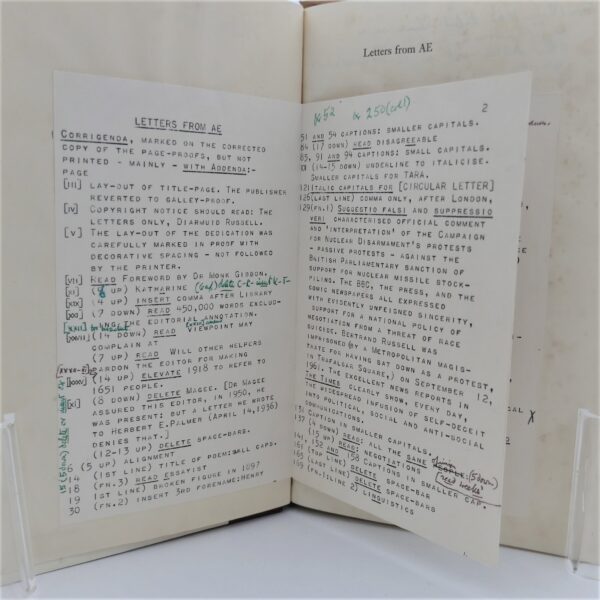 Letters from AE
LETTERS FROM AE
CORRIGENDA, MARKED ON THE CORRECTED
COPY OF THE PAGE-PROOFS, BUT NOT
PRINTED - MAINLY - WITH ADDENDA:-
PAGE
[III] LAY-OUT OF TITLE-PAGE. THE PUBLISHER
REVERTED TO GALLEY-PROOF.
[IV] COPYRIGHT NOTICE SHOULD READ: THE
LETTERS ONLY, DIARMUID RUSSELL.
[V] THE LAY-OUT OF THE DEDICATION WAS
CAREFULLY MARKED IN PROOF WITH
DECORATIVE SPACING - NOT FOLLOWED
BY THE PRINTER.
[VII] READ FOREWORD BY DR MONK GIBBON,
[XI] UP) KATHARINE
[XIX] (4 UP) INSERT COMMA AFTER LIBRARY
[XXI] (7 DOWN) READ 450,000 WORDS EXCLUD-
ING THE EDITORIAL ANNOTATION.
(14 DOWN) READ VIEWPOINT MAY
COMPLAIN AT
(7 UP) READ WILL OTHER HELPERS
PARDON THE EDITOR FOR MAKING
(14 UP) ELEVATE 1918 TO REFER TO
1651 PEOPLE.
(8 DOWN) DELETE MAGEE. [DR MAGEE
ASSURED THIS EDITOR, IN 1950, HE
WAS PRESENT: BUT A LETTER HE WROTE
TO HERBERT E. PALMER (APRIL 14, 1936)
DENIES THAT.]
(12-13 UP) DELETE SPACE-BARS.
6 (5 UP) ALIGNMENT
14 (1ST LINE) TITLE OF POEM: CAPS.
18 (FN.3) READ ESSAYIST
19 (1ST LINE) BROKEN FIGURE IN 1897
30 (FN.2) INSERT 3RD FORENAME: HENRY
2
51 AND 54 CAPTIONS: SMALLER CAPITALS.
84 (17 DOWN) READ DISAGREEABLE
85, 91 AND 94 CAPTIONS: SMALL CAPITALS.
(14-15 DOWN) UNDERLINE TO ITALICISE.
SMALLER CAPITALS FOR TARA.
121 ITALIC CAPITALS FOR [CIRCULAR LETTER]
126 (LAST LINE) COMMA ONLY, AFTER LONDON,
129 (FN.1) SUGGESTIO FALSI AND SUPPRESSIO
VERI CHARACTERISED OFFICIAL COMMENT
AND 'INTERPRETATION' OF THE CAMPAIGN
FOR NUCLEAR DISARMAMENT'S PROTESTS
- PASSIVE PROTESTS - AGAINST THE
BRITISH PARLIAMENTARY SANCTION OF
SUPPORT FOR NUCLEAR MISSILE STOCK-
PILING. THE BBC, THE PRESS, AND THE
COMIC NEWSPAPERS ALL EXPRESSED
WITH EVIDENTLY UNFEIGNED SINCERITY,
SUPPORT FOR A NATIONAL POLICY OF
NEGOTIATION FROM A THREAT OF RACE
SUICIDE. BERTRAND RUSSELL WAS
IMPRISONED (BY A METROPOLITAN MAGIS-
TRATE FOR HAVING SAT DOWN AS A PROTEST,
IN TRAFALGAR SQUARE,) ON SEPTEMBER 12,
1961. THE EXCELLENT NEWS REPORTS IN
THE TIMES CLEARLY SHOW, EVERY DAY,
THE WIDESPREAD INFUSION OF SELF-DECEIT
INTO POLITICAL, SOCIAL AND ANTI-SOCIAL
COMMUNICATIONS.
CAPTION IN SMALLER CAPITALS.
137 (4 DOWN) READ: ALL THE SAME
141 (15 UP) READ: NEGOTIATIONS
152 AND 158 CAPTIONS IN SMALLER CAP.
(TOP LINE) DELETE SPACE-BAR
(LAST LINE) DELETE SPACE-BARS
159 (FN.1: LINE 2) LINGUISTICS